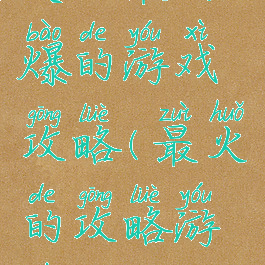 bào de yóu xì
爆的游戏
gōng lüè zuì huǒ
攻略(最火
de gōng lüè yóu
的攻略游